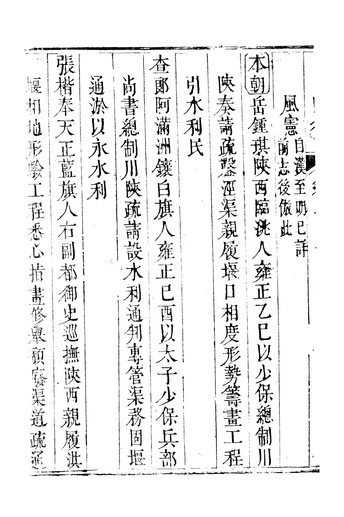 風憲自漢至明已詳前志後倣此
本朝岳鍾琪陝西臨洮人雍正乙巳以少保總制川
陝奏請疏鑿涇渠親履堰口相度形勢籌畫工程
引水利民
查郎阿滿洲鑲白旗人雍正己酉以太子少保兵部
尚書總制川陝疏請設水利通判專管渠務固堰
通淤以永水利
張楷奉天正藍旗人右副都御史巡撫陝西親履洪
堰相地形驗工程悉心措畫修舉頽廢渠道疏通